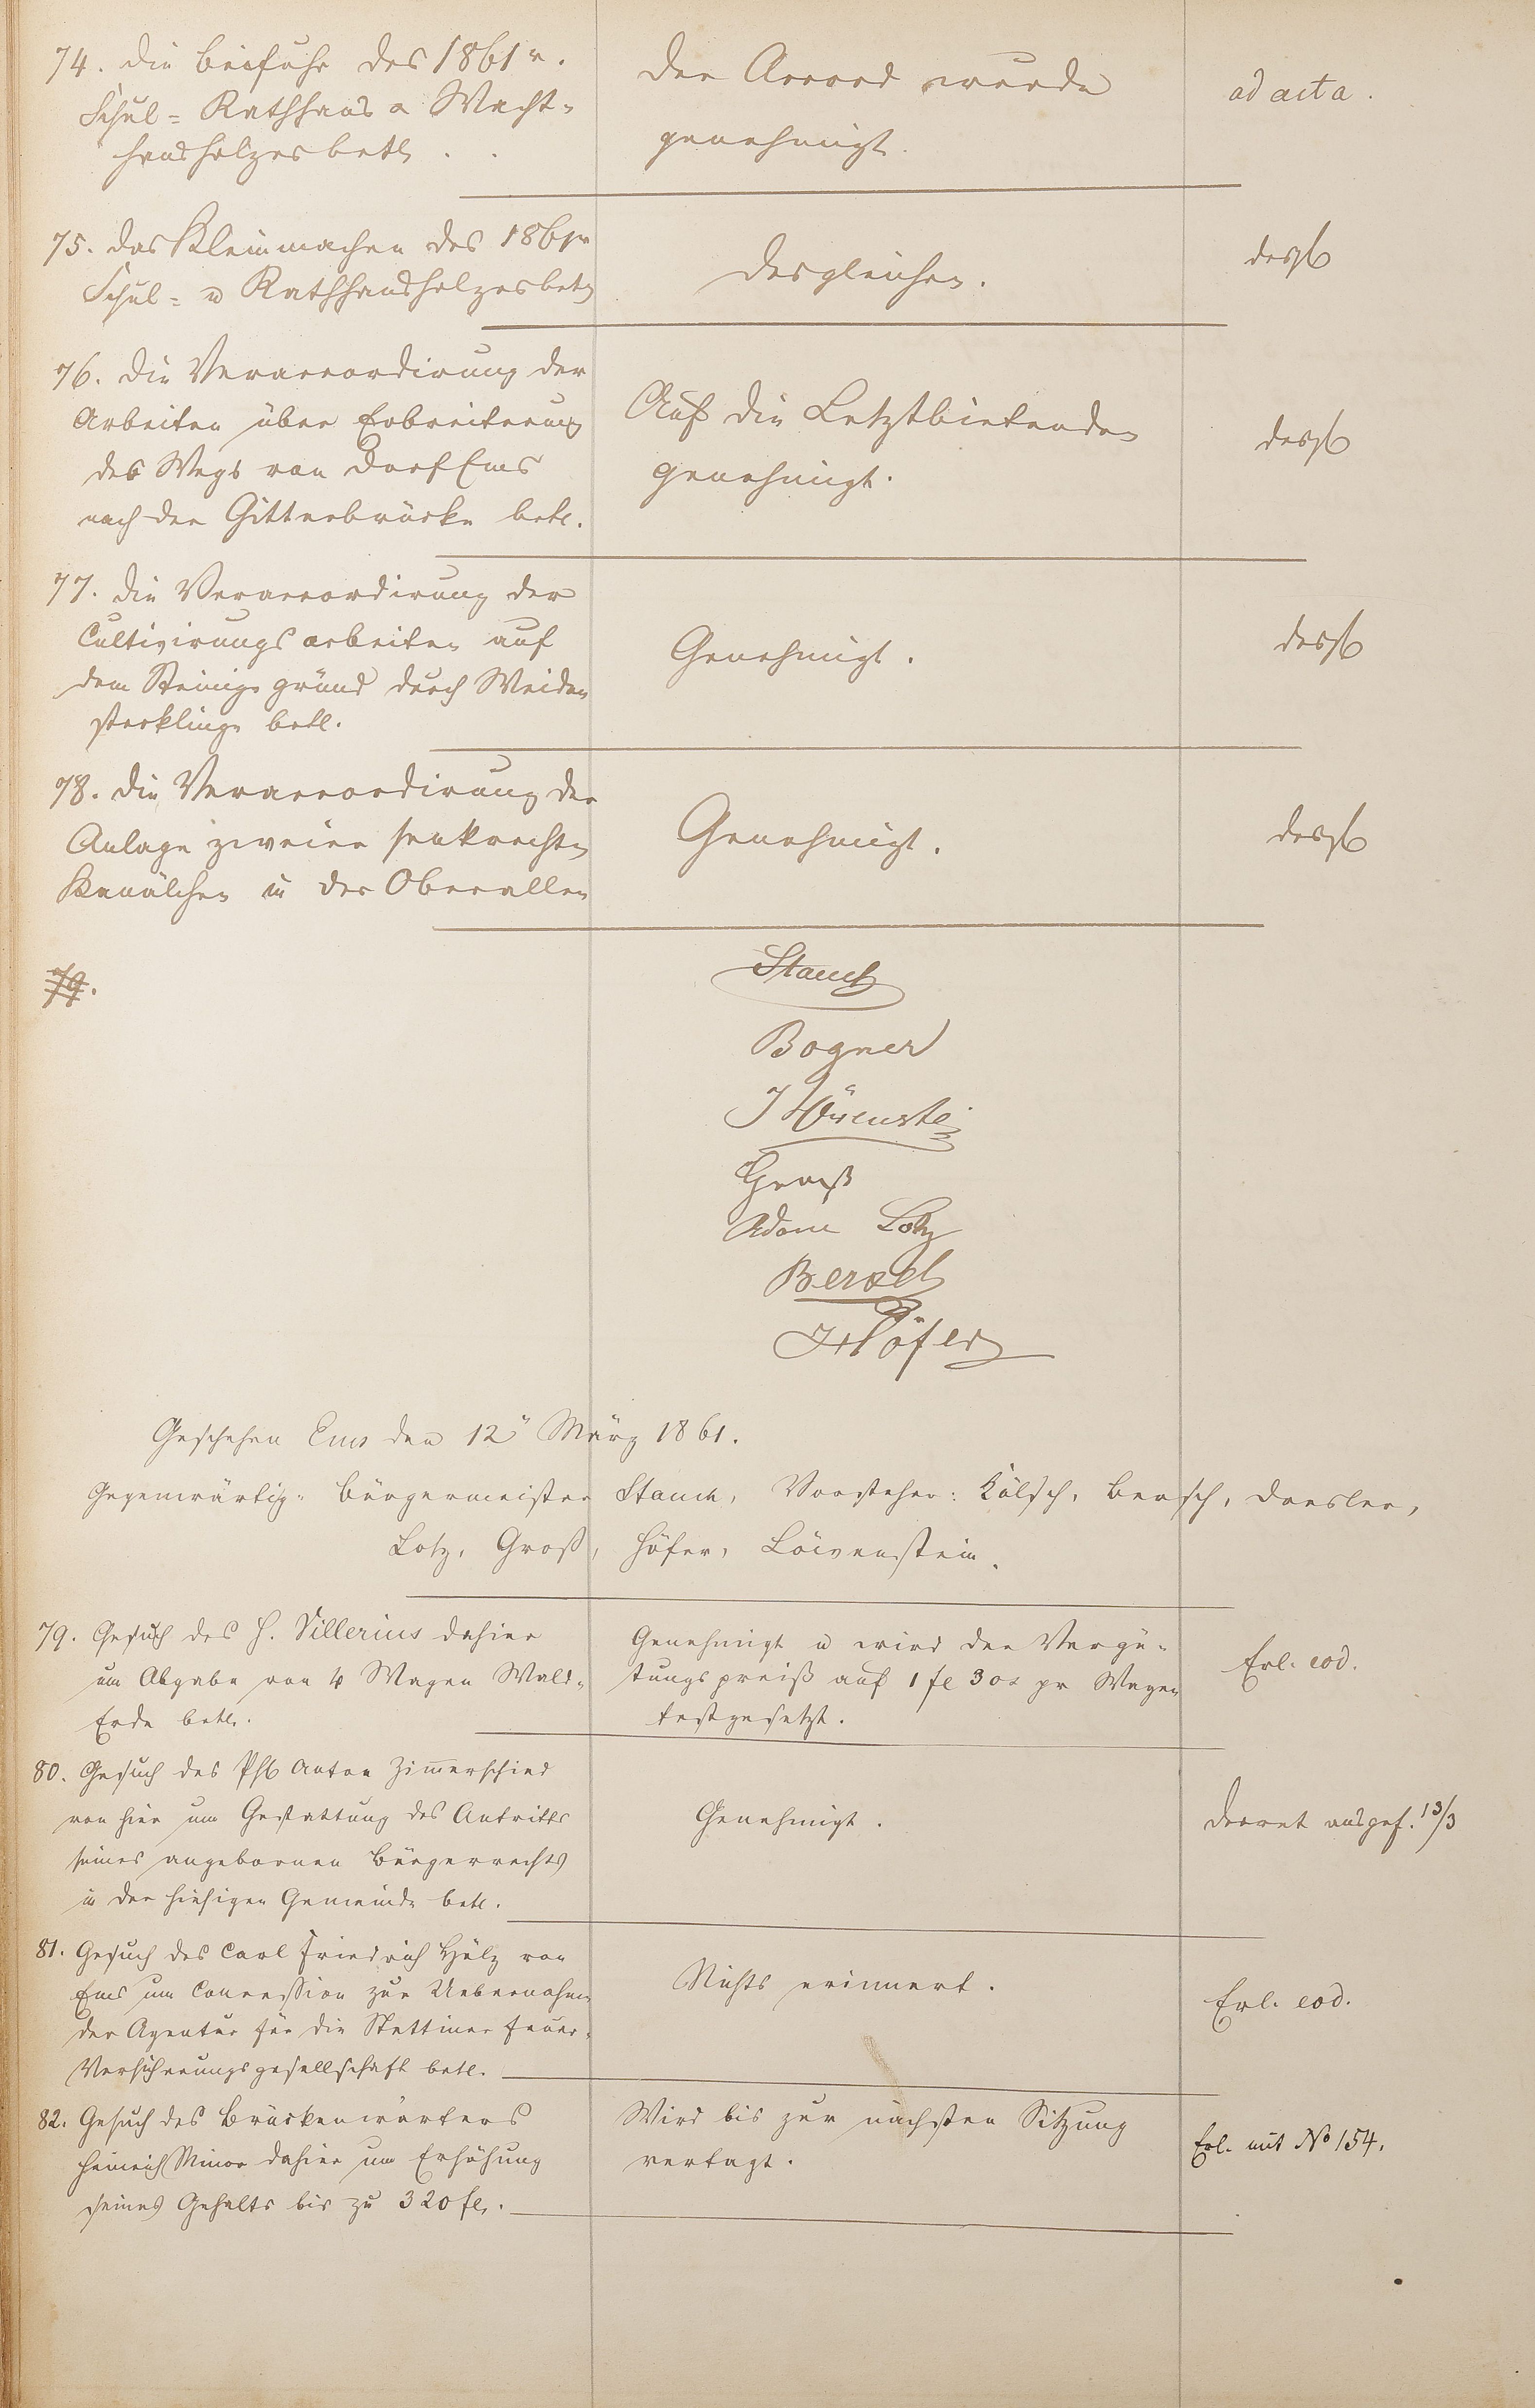 74. die Beifuhr des 1861r.
Schul- Rathhaus u Wacht-
hausholzes betr.
Der Accord wurde
genehmigt.
ad acta.
75. das Kleinmachen des 1861r
Schul- u Rathhausholzes betr
Desgleichen.
desgl
76. die Veraccordirung der
Arbeiten über Erbreiterung
des Wegs von Dorf Ems
nach der Gitterbrücke betr.
Auf die Letztbietenden
genehmigt.
desgl
77. die Veraccordirung der
Cultivirungsarbeiten auf
dem durch Weiden
stecklinge betr.
Genehmigt.
desgl
78. die Veraccordirung der
Anlage zweier senkrechten
Kanälchen in der Oberallee
Genehmigt.
desgl
79.
Stauch
Bogner
J Löwenstein
Groß
Adam Lotz
Bersch
Höfer
Geschehen Ems den 12" März 1861.
Gegenwärtig: Bürgermeister Stauch, Vorsteher: Kölsch, Bersch, Dresler,
Lotz, Groß, Höfer, Löwenstein.
79. Gesuch des H. Villerius dahier
um Abgabe von 4 Wagen Wald-
Erde betr.
Genehmigt u wird der Vergü-
tungspreiß auf 1 fl 30x pr Wagen
festgesetzt.
Erl. eod.
80. Gesuch des Phil Anton Zimerschied
von hier um Gestattung des Antritts
seines angebornen Bürgerrechts
in der hiesigen Gemeinde betr.
Genehmigt.
Decret ausgef. 13/3
81. Gesuch des Carl Friedrich Hölz von
Ems um Concession zur Uebernahme
der Agentur für die Stettiner Feuer-
Versicherungsgesellschaft betr.
Nichts erinnert.
Erl. eod.
82. Gesuch des Brückenwärters
Heinrich Minor dahier um Erhöhung
seines Gehalts bis zu 320 fl.
Wird bis zur nächsten Sitzung
vertagt.
Erl. mit No 154.